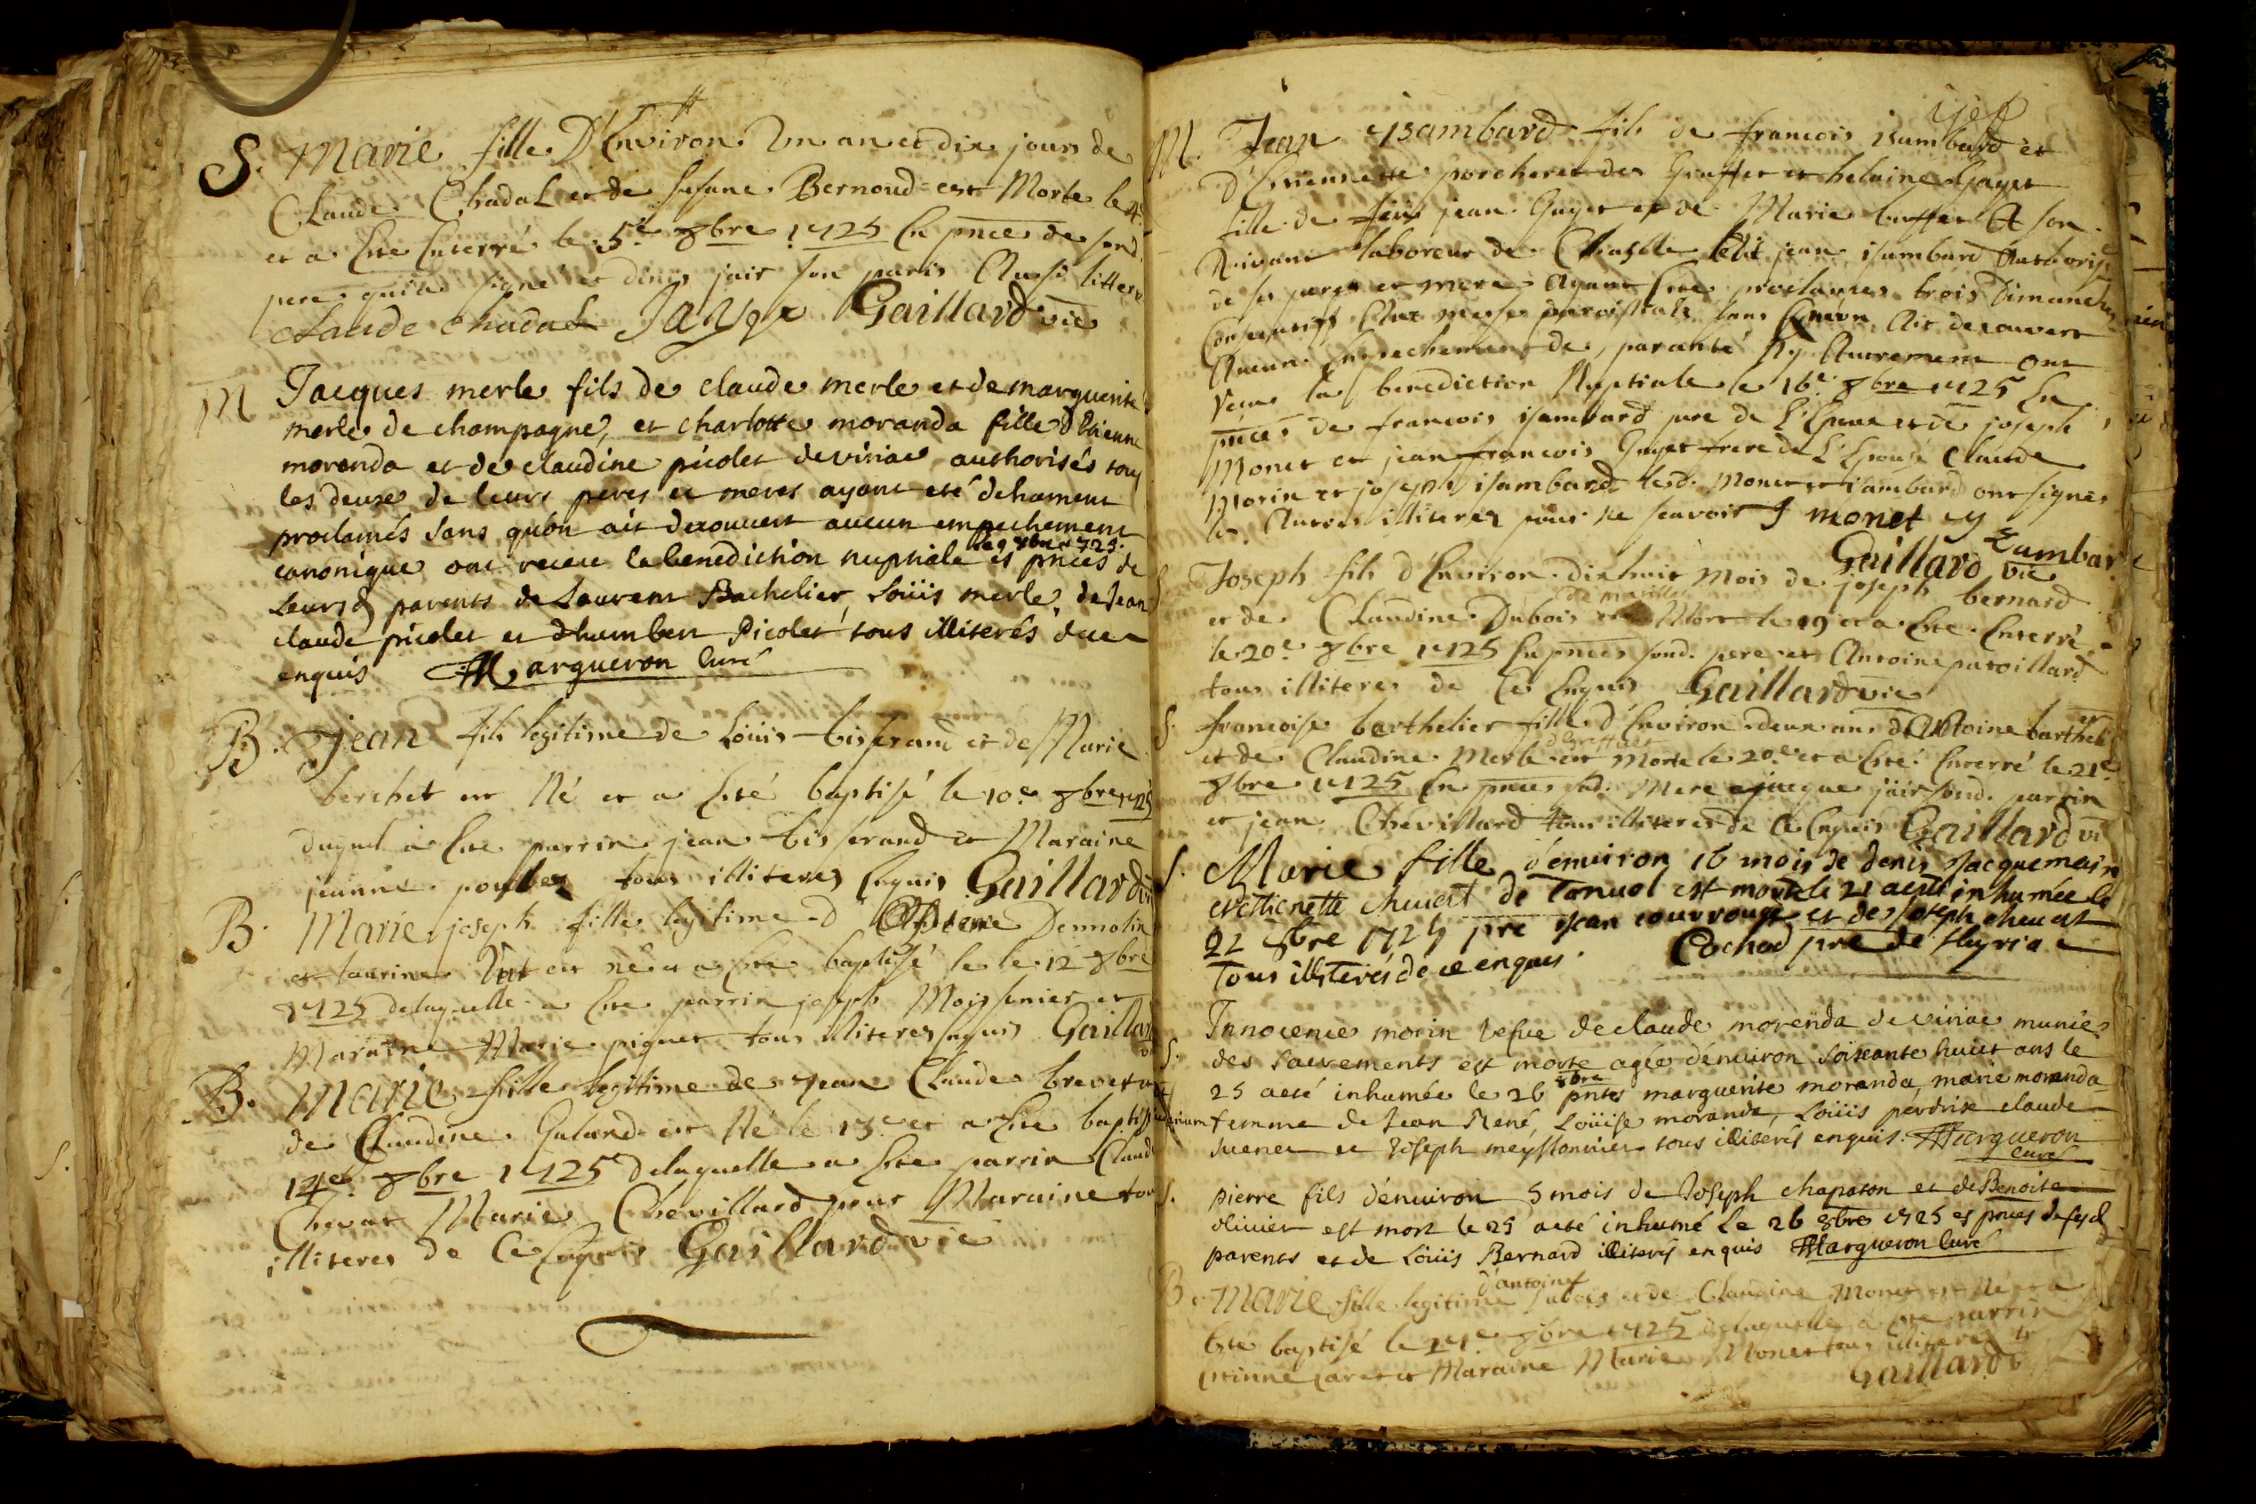 S. Marie fille D'Environ Un an et dix jours de
Claude Chadal et de Susane Bernoud est Morte le 4e
et a Esté Enterré le 5e 8bre 1725 En pnce de sond.
pere qui a signé et denis jair son parin Aussi littere
claude chadal Jayr Gaillard vic
M Jacques merle fils de claude merle et de marguerite
merle de champagne, et charlotte moranda fille d'Etienne
moranda et de claudine picolet de viriac authorisés tous
les deux de leurs peres et meres ayant eté dehument
proclamés sans qu'on ait decouvert aucun empechement
le 9 8bre 1725.
canonique ont receu la benediction nuptiale es pnces de
leursd parents de Laurent Bachelier, Loüis merle, de Jean
claude picolet et d'humbert Picolet tous illiterés de ce
enquis Margueron Curé
B. jean fils legitime de Loüis tisserand et de Marie
berchet est Né et a Esté baptisé le 10e 8bre 1725
duquel a Esté parrin jean tisserand et Maraine
jeanne tous illiteres Enquis Gaillard vi
B. Marie joseph fille legitime d Demolin
et laurine est née et a Esté baptisé le le 12 8bre
1725 de laquelle a Esté parrin joseph Moissonier et
Maraine Marie piquet tous illiteres Enquis Gaillard
B. Marie fille legitime de jean Claude brevet
de Claudine Galand est Né le 13e et a Esté baptisé
14e 8bre 1725 de laquelle a Esté parrin Claud
Chevat Marie Chevillard pour Maraine tous
illiteres de Ce Enquis Gaillard vic
M. Jean isambard fils de francois isambard et
D'Etiennette porcheret des Gouffet et helaine Gayet
fille de feüs jean Gayet et de Marie buffet A son
Laboreur de Chaselle Ledit jean isambard Authorisé
de ses peres et mere Ayant Estés proclames trois Dimanches
Consecutifs Aux messes paroissiale sans Ait decouvert
Aucun Empechement de parenté Ny Autrement ont
receu la benediction Nuptiale le 16e 8bre 1725 En
pnces de francois isambard pere de L'Epoux et de joseph
Monet et jean francois Gayet frere de L'Epouse Claude
Morin et joseph isambard lesd. Monet et isambard ont signes
les Autres illiteres pour ne scavoir J monet
Gaillard vic
Joseph fils d'Environ dix huit Mois de joseph bernard
et de Claudine Dubois Mort le 19 et a Esté Enterré
le 20e 8bre 1725 En pnces sond. pere et Antoine patoillard
tous illiteres de Ce Enquis Gaillard vic
S. francoise barthelier fille d'Environ deux ans d'Antoine barthelier
et de Claudine Merle est Morte le 20e et a Esté Enterré le 21e
8bre 1725 En pnces sad. Mere jacque jair sond. parrin
et jean Chevillard tous illiteres de Ce Enquis Gaillard vi
S. Marie fille d'enuiron 16 mois de denis Jacquemain
et Etienette cheuat de Tanuol est morte le 21 a esté inhumée le
22 8bre 1725 pre Jean courvoup et de Joseph cheuat
Tous illiterés de ce enquis. Cochod pre de fleyria
S. Innocence morin vefue de claude moranda de viriac munie
des sacrements est morte agée d'enuiron soixante huict ans le
25 a eté inhumée le 26 8bre pntes marguerite moranda, marie moranda
femme de Jean René, Loüise moranda, Loüis perdrix claude
et Joseph meyssonnier tous illiterés enquis. Margueron
curé
S. pierre fils d'enuiron 5 mois de Joseph chapaton et de Benoite
olivier est mort le 25 a eté inhumé le 26 8bre 1725 es pnces de sesd
parents et de Loüis Bernard illiterés enquis Margueron Curé
d'antoine
B. Marie fille legitime et de Claudine Monet est Né et a
Esté baptisé le 8bre 1725 de laquelle a Esté parrin
et Maraine Marie Monet tous illiteres
Gaillard